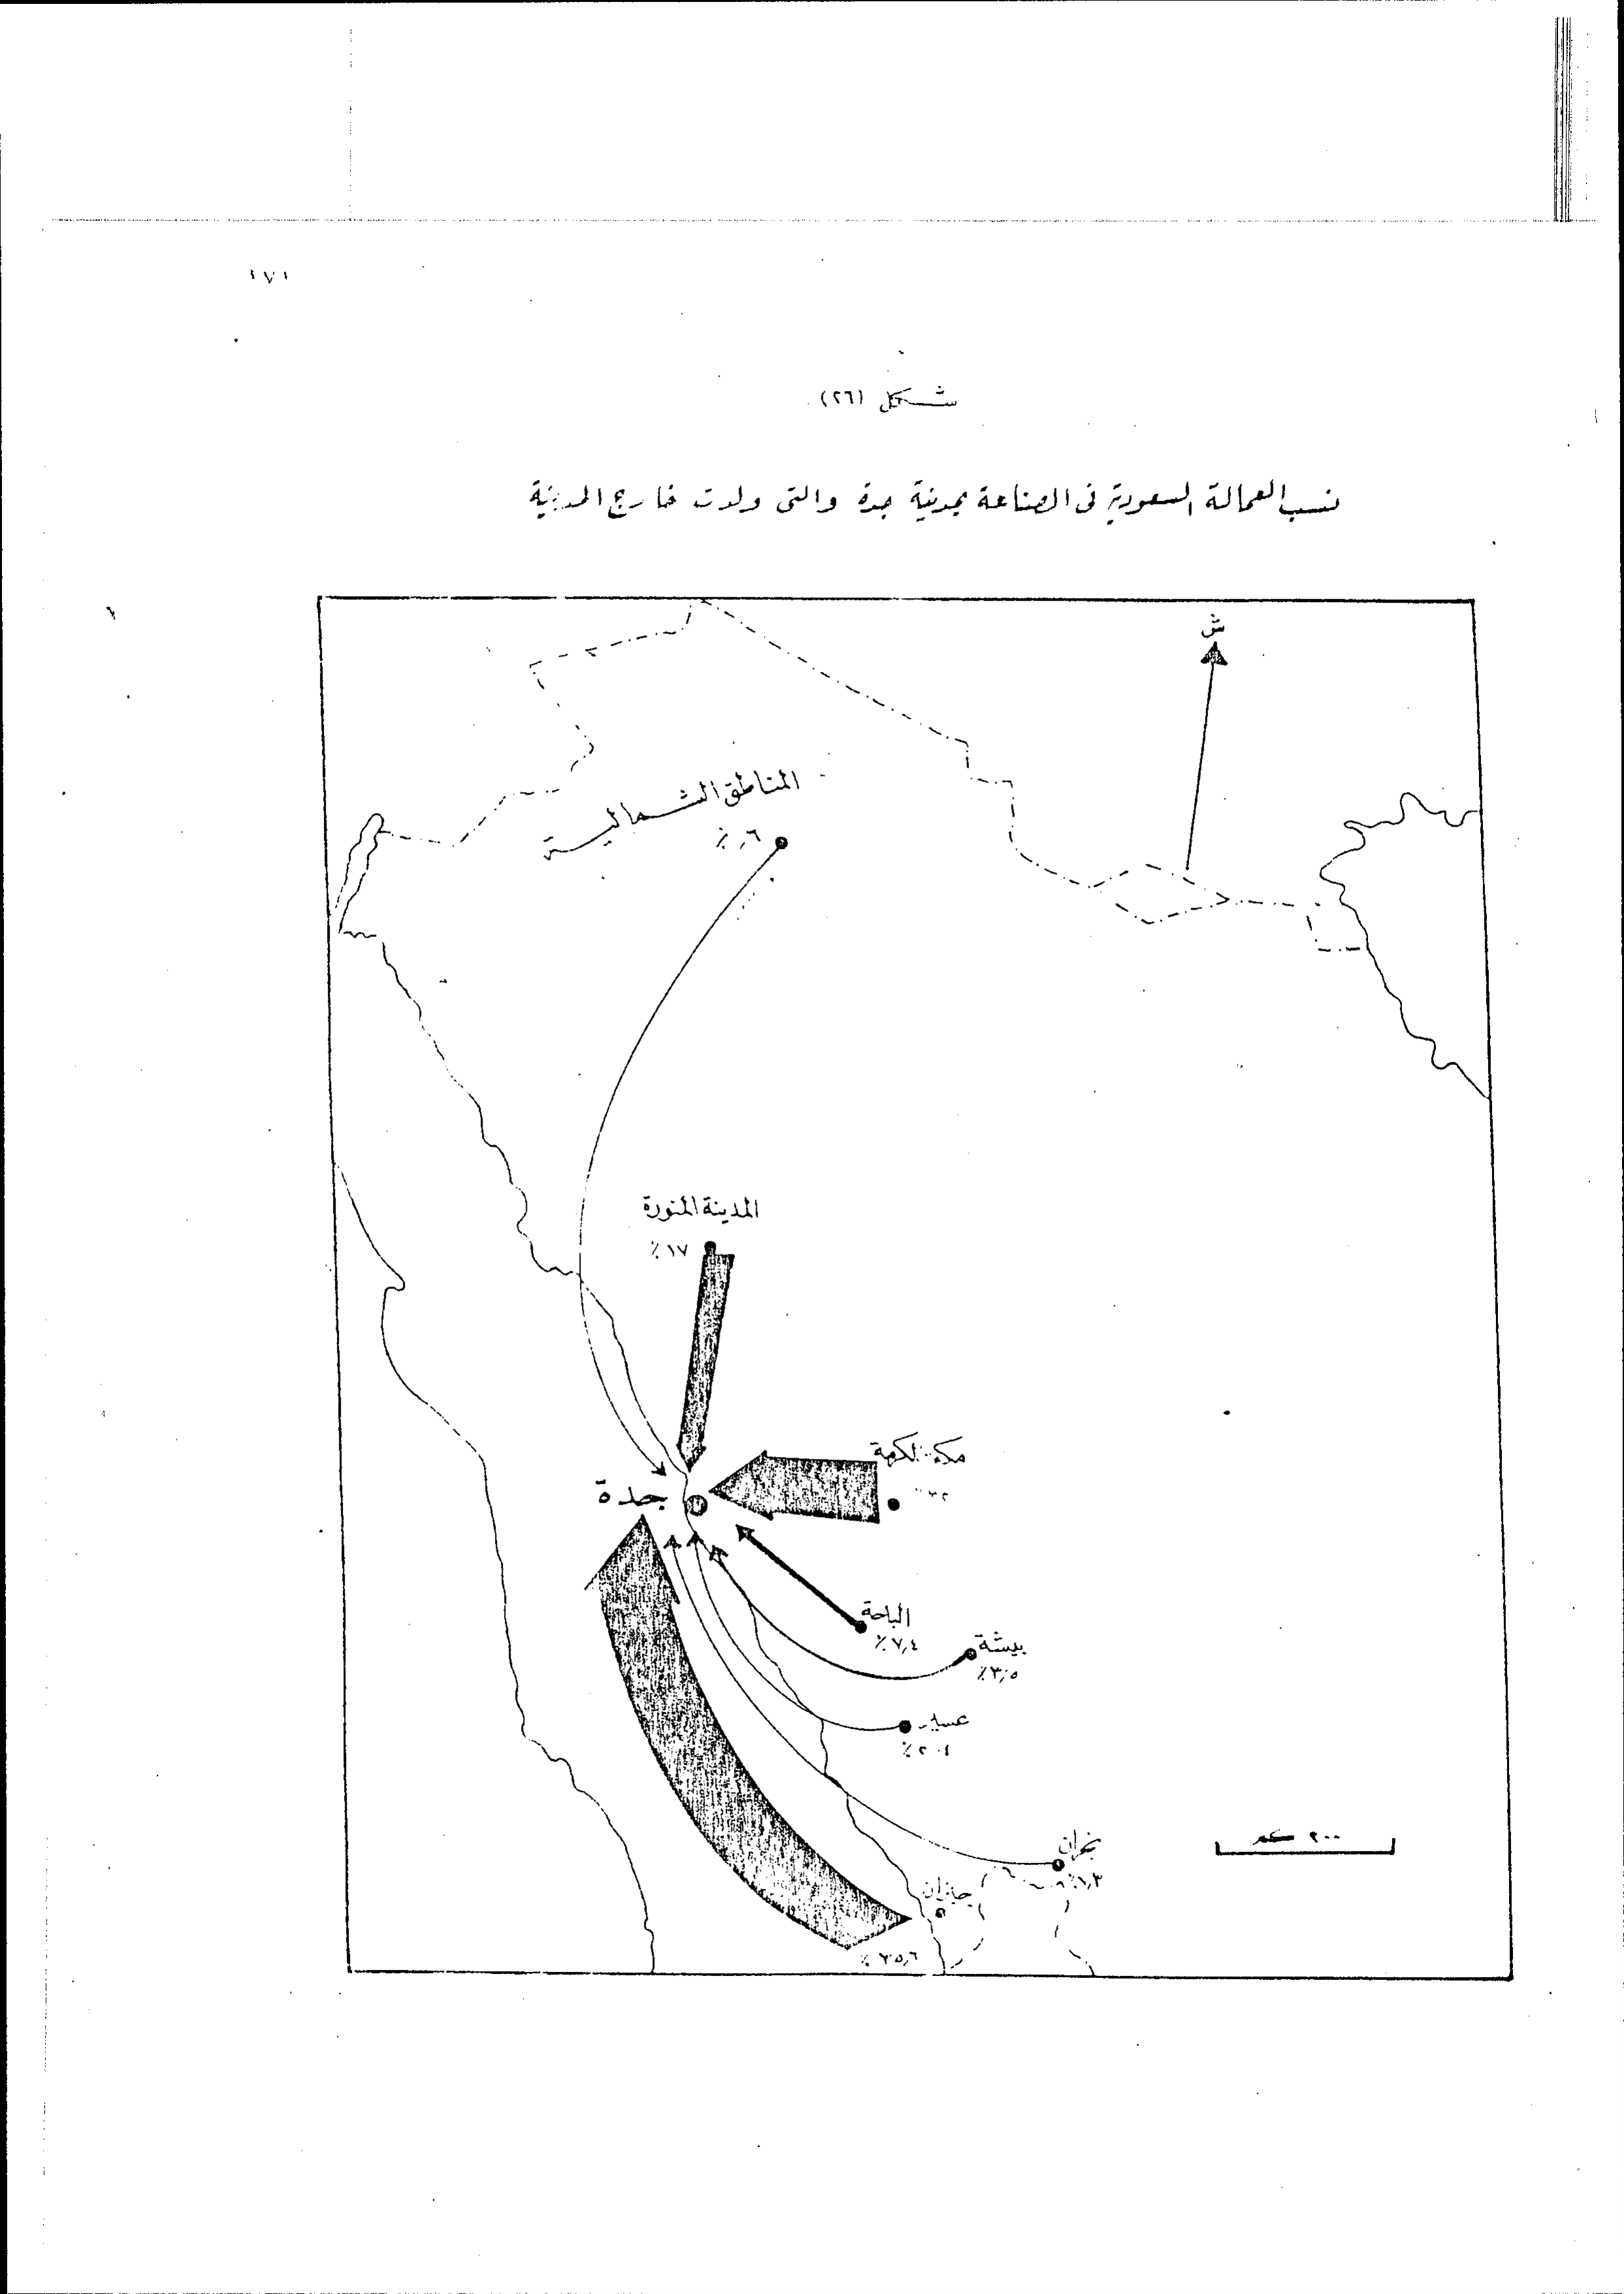 ١٧١
شكل (٢٦)
نسب العمالة السعودية فى الصناعة بمدينة جدة والتى ولدت خارج المدينة
ش
المناطق الشمالية
٦,٪
المدينة المنورة
١٧٪
مكة المكرمة
جدة
الباحة
٧,٤٪
بيشة
٣,٥٪
عسير
٢٠٤٪
٢٠٠ كم
نجران
١,٣٪
جازان
٣٥,٦٪